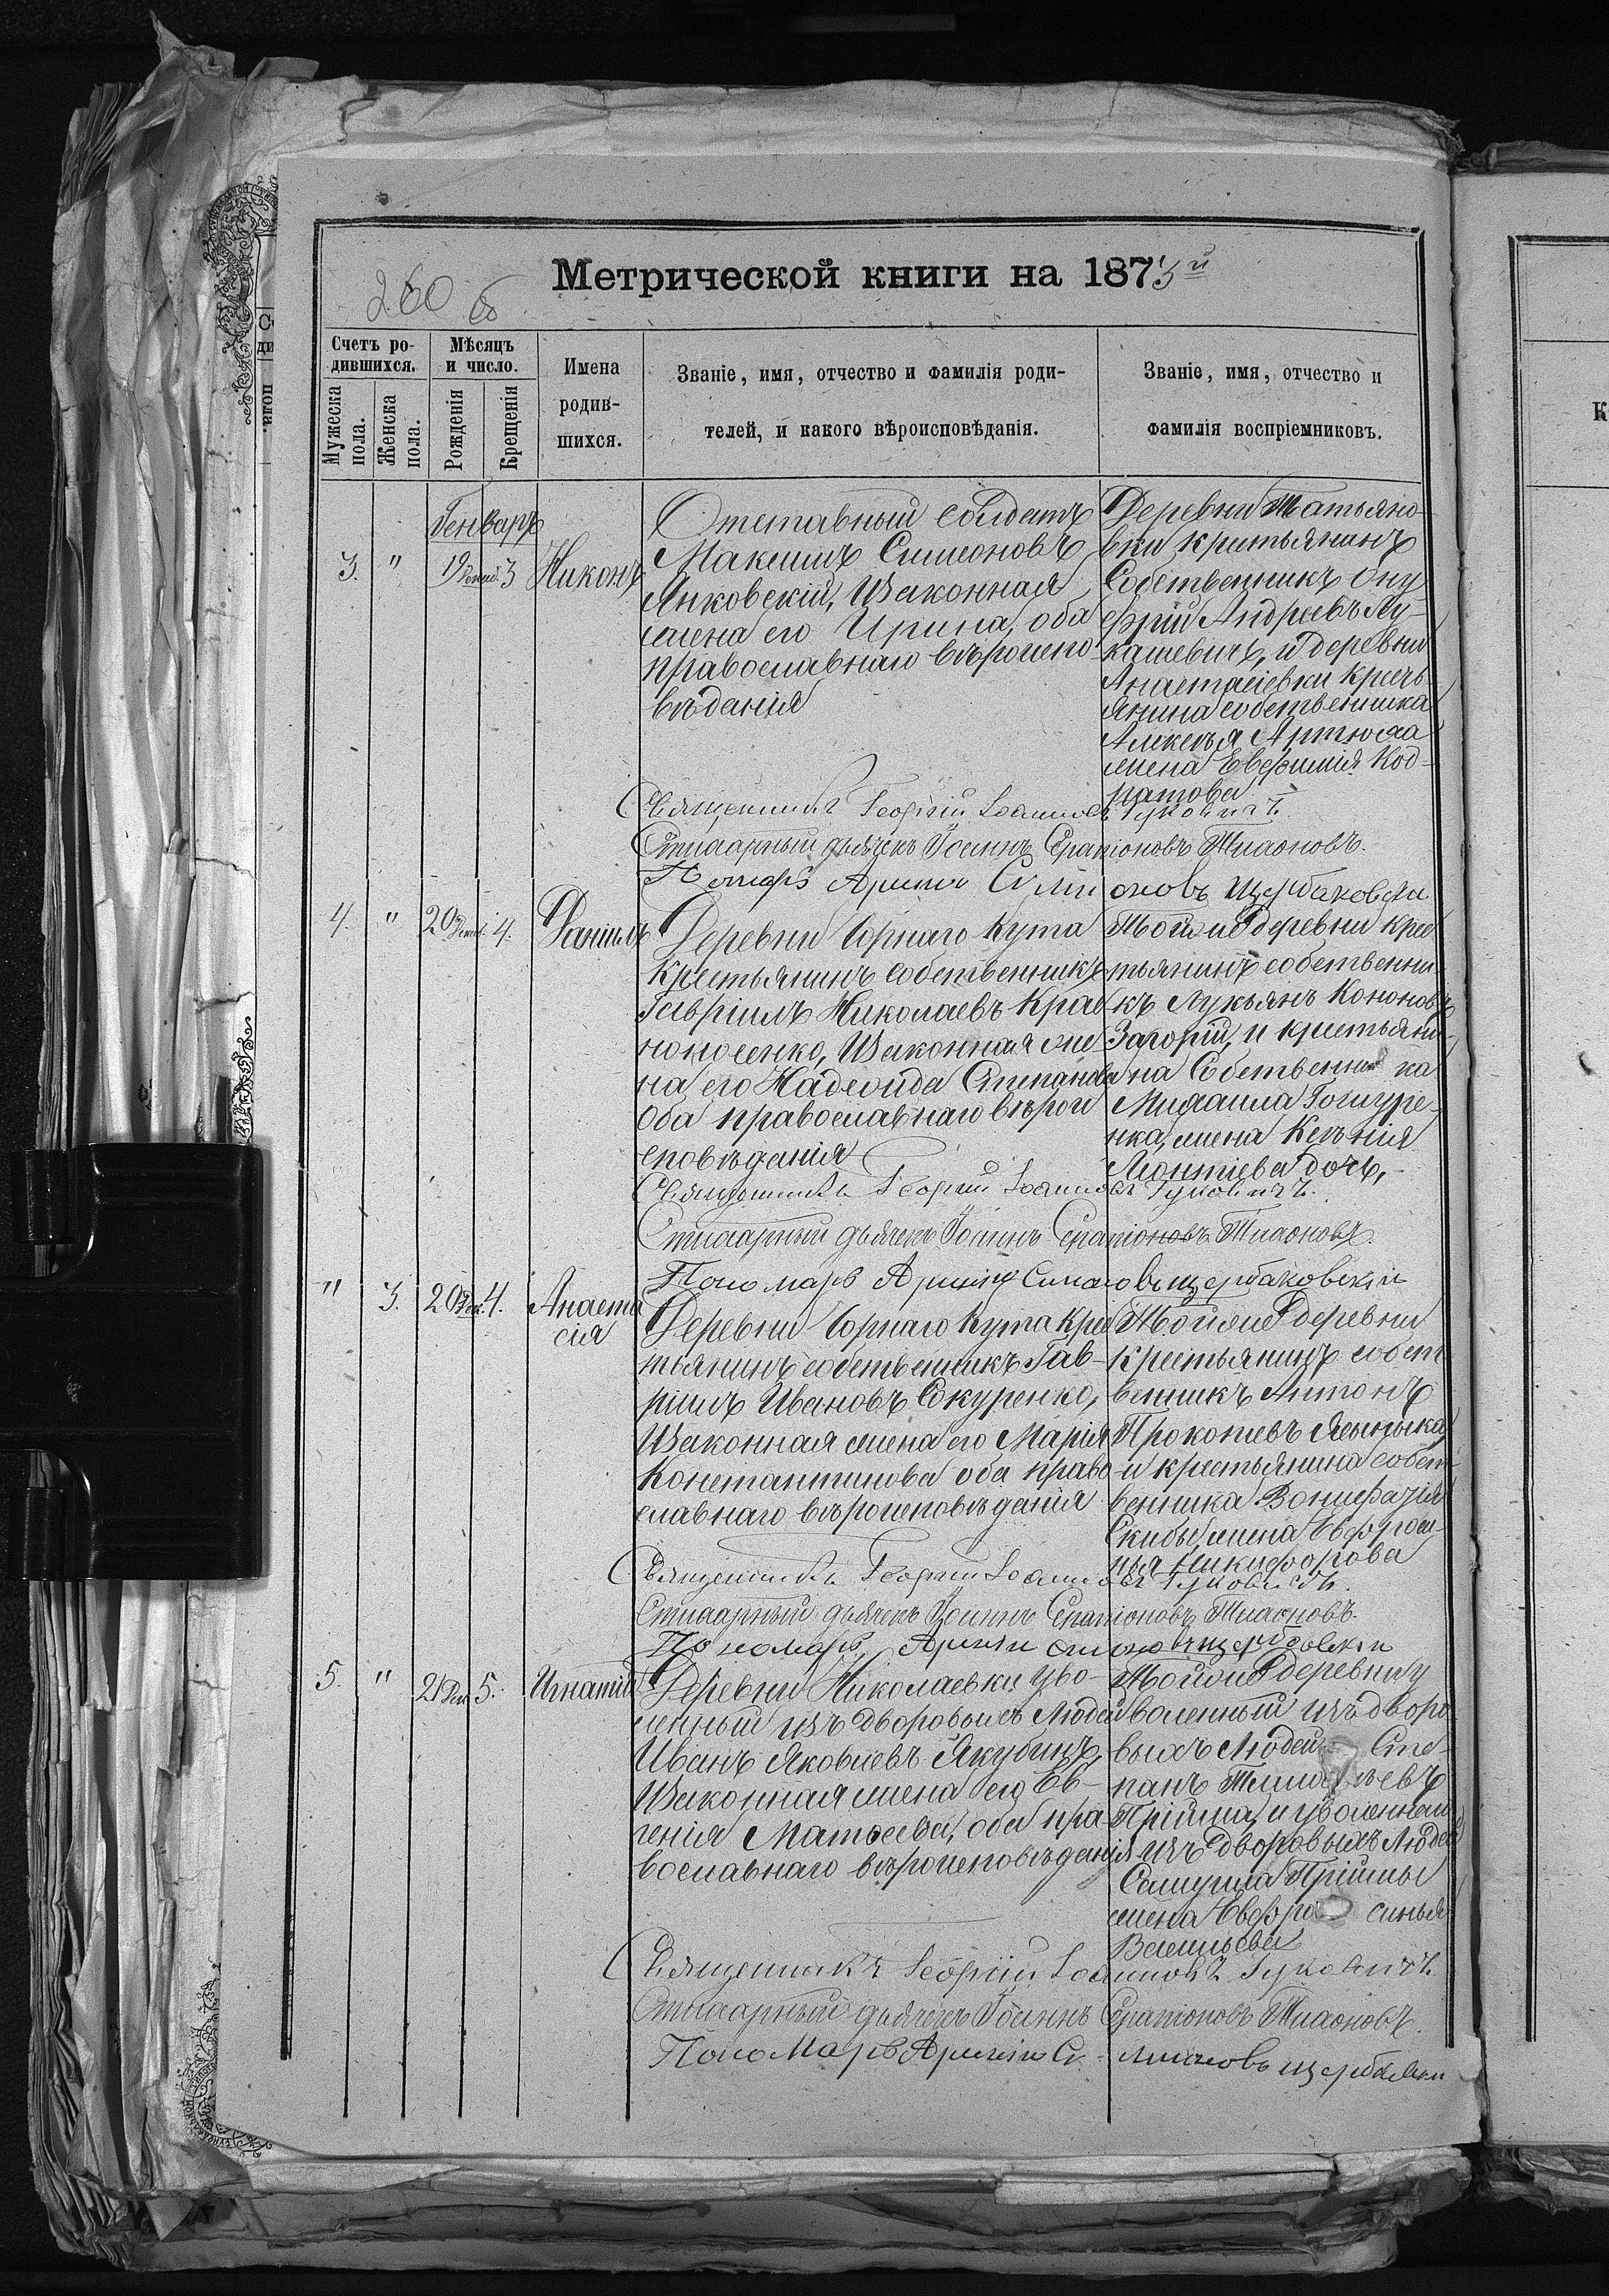 260 об
Метрической книги на 1873й
Счетъ ро-
дившихся.
Мужеска пола.
Женска пола.
Мѣсяцъ
и число.
Рожденія
Крещенія
Имена
родив-
шихся.
Званіе, имя, отчество и фамилія роди-
телей, и какого вѣроисповѣданія.
Званіе, имя, отчество и
фамилія воспріемниковъ.
Генварь
3. " 19 3 Никонъ
Отставный солдатъ
Максимъ Симеоновъ
Янковскій, Изаконная
жена его Ирина, оба
православнаго вѣроиспо-
вѣданія
Деревни Татьяно-
вки крестьянинъ
Собственникъ Ону
фрій Андреевъ Лу-
кашевичъ, и деревни
Анастасіевки кресть-
янина собственника
Алексѣя Артюха
жена Евфимія Код-
ратова
Священникъ Георгій Іоанновъ
Стихарный дьячекъ Іоаннъ Серапіоновъ Тихоновъ.
Пономарь Щербаковскій
4. " 20 Декаб. 4. Даніилъ
Деревни Горнаго Кута
Крестьянинъ собственникъ
Гавріилъ Николаевъ Крас
ноносенко, Изаконная же
на его Надежда Степанова
Оба православнаго вѣрои
сповѣданія
Тойже деревни крес
тьянинъ собственни
къ Лукьянъ Кононовъ
Загорій, и крестьяни-
на Собственни ка
Михаила Гончаре-
нка, жена Ксенія
Леонтіева дочь,
Священникъ Георгій Іоанновъ
Стихарный дьячекъ Іоаннъ Серапіоновъ Тихоновъ.
Пономарь Щербаковскій
" 3. 20 Дек. 4. Анаста
сія
Деревни Горнаго Кута крес
тьянинъ собственникъ Гав-
ріилъ Ивановъ Сокуренко,
Изаконная жена его Марія
Константинова оба право-
славнаго вѣроисповѣданія
Тойже деревни
Крестьянинъ собст
венникъ Антонъ
Прокопіевъ
и крестьянина собст-
венника Вонифатія
Скибы жена Евфроси-
нья Никифорова
Священникъ Георгій Іоанновъ
Стихарный дьячекъ Іоаннъ Серапіоновъ Тихоновъ.
Пономарь
5. " 21 Дек 5. Игнатій
Деревни Николаевки уво-
ленный изъ дворовыхъ людей
Иванъ Яковлевъ Якубинъ,
Изаконная жена его Ев-
генія Матѳеева, оба пра-
вославнаго вѣроисповѣданія
Тойже деревни у
воленный изъ дворо-
выхъ людей Сте-
панъ
Прійма, и уволеннаго
изъ дворовыхъ людей
Самуила Пріймы
жена Евфро синья
Васильева
Священникъ Георгій Іоанновъ
Стихарный дьячекъ Іоаннъ Серапіоновъ Тихоновъ.
Пономарь